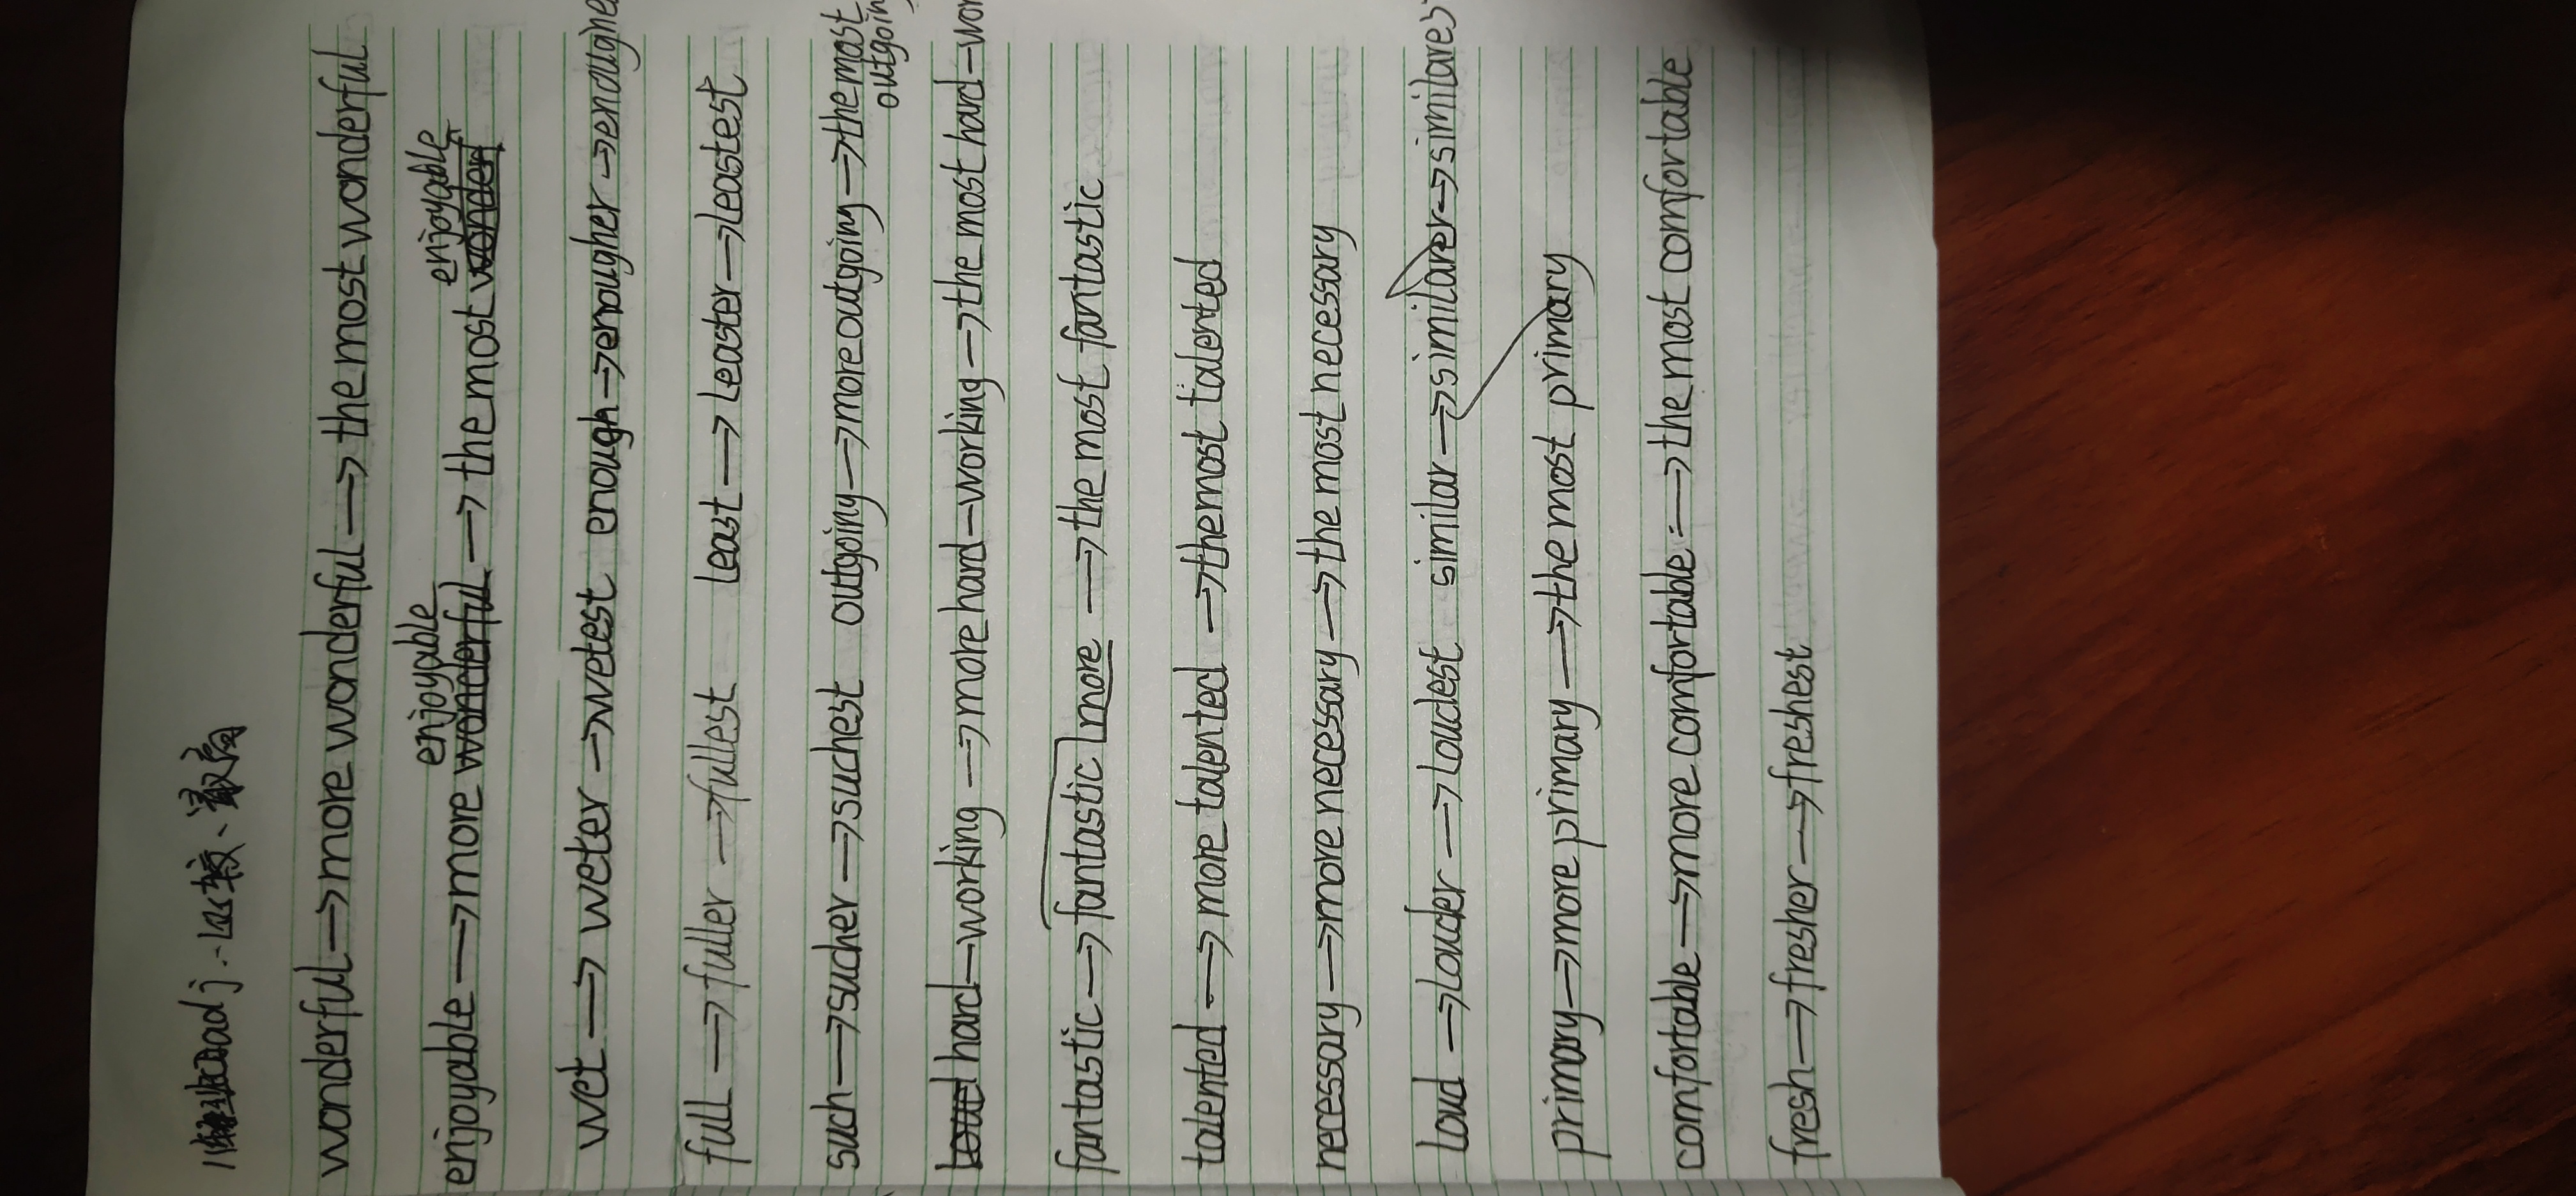 adj.比较、最高
wonderful→more wonderful→the most wonderful
enjoyable→more enjoyable→the most enjoyable
wet→weter→wetest enough→enougher→enoughe
full→fuller→fullest least→leaster→leastest
such→sucher→suchest outgoing→more outgoing→the most
outgoin
hard-working→more hard-working→the most hard-wor
fantastic→fantastic more→the most fantastic
talented→more talented→the most talented
necessary→more necessary→the most necessary
loud→louder→loudest similar→similarer→similares
primary→more primary→the most primary
comfortable→more comfortable→the most comfortable
fresh→fresher→freshest